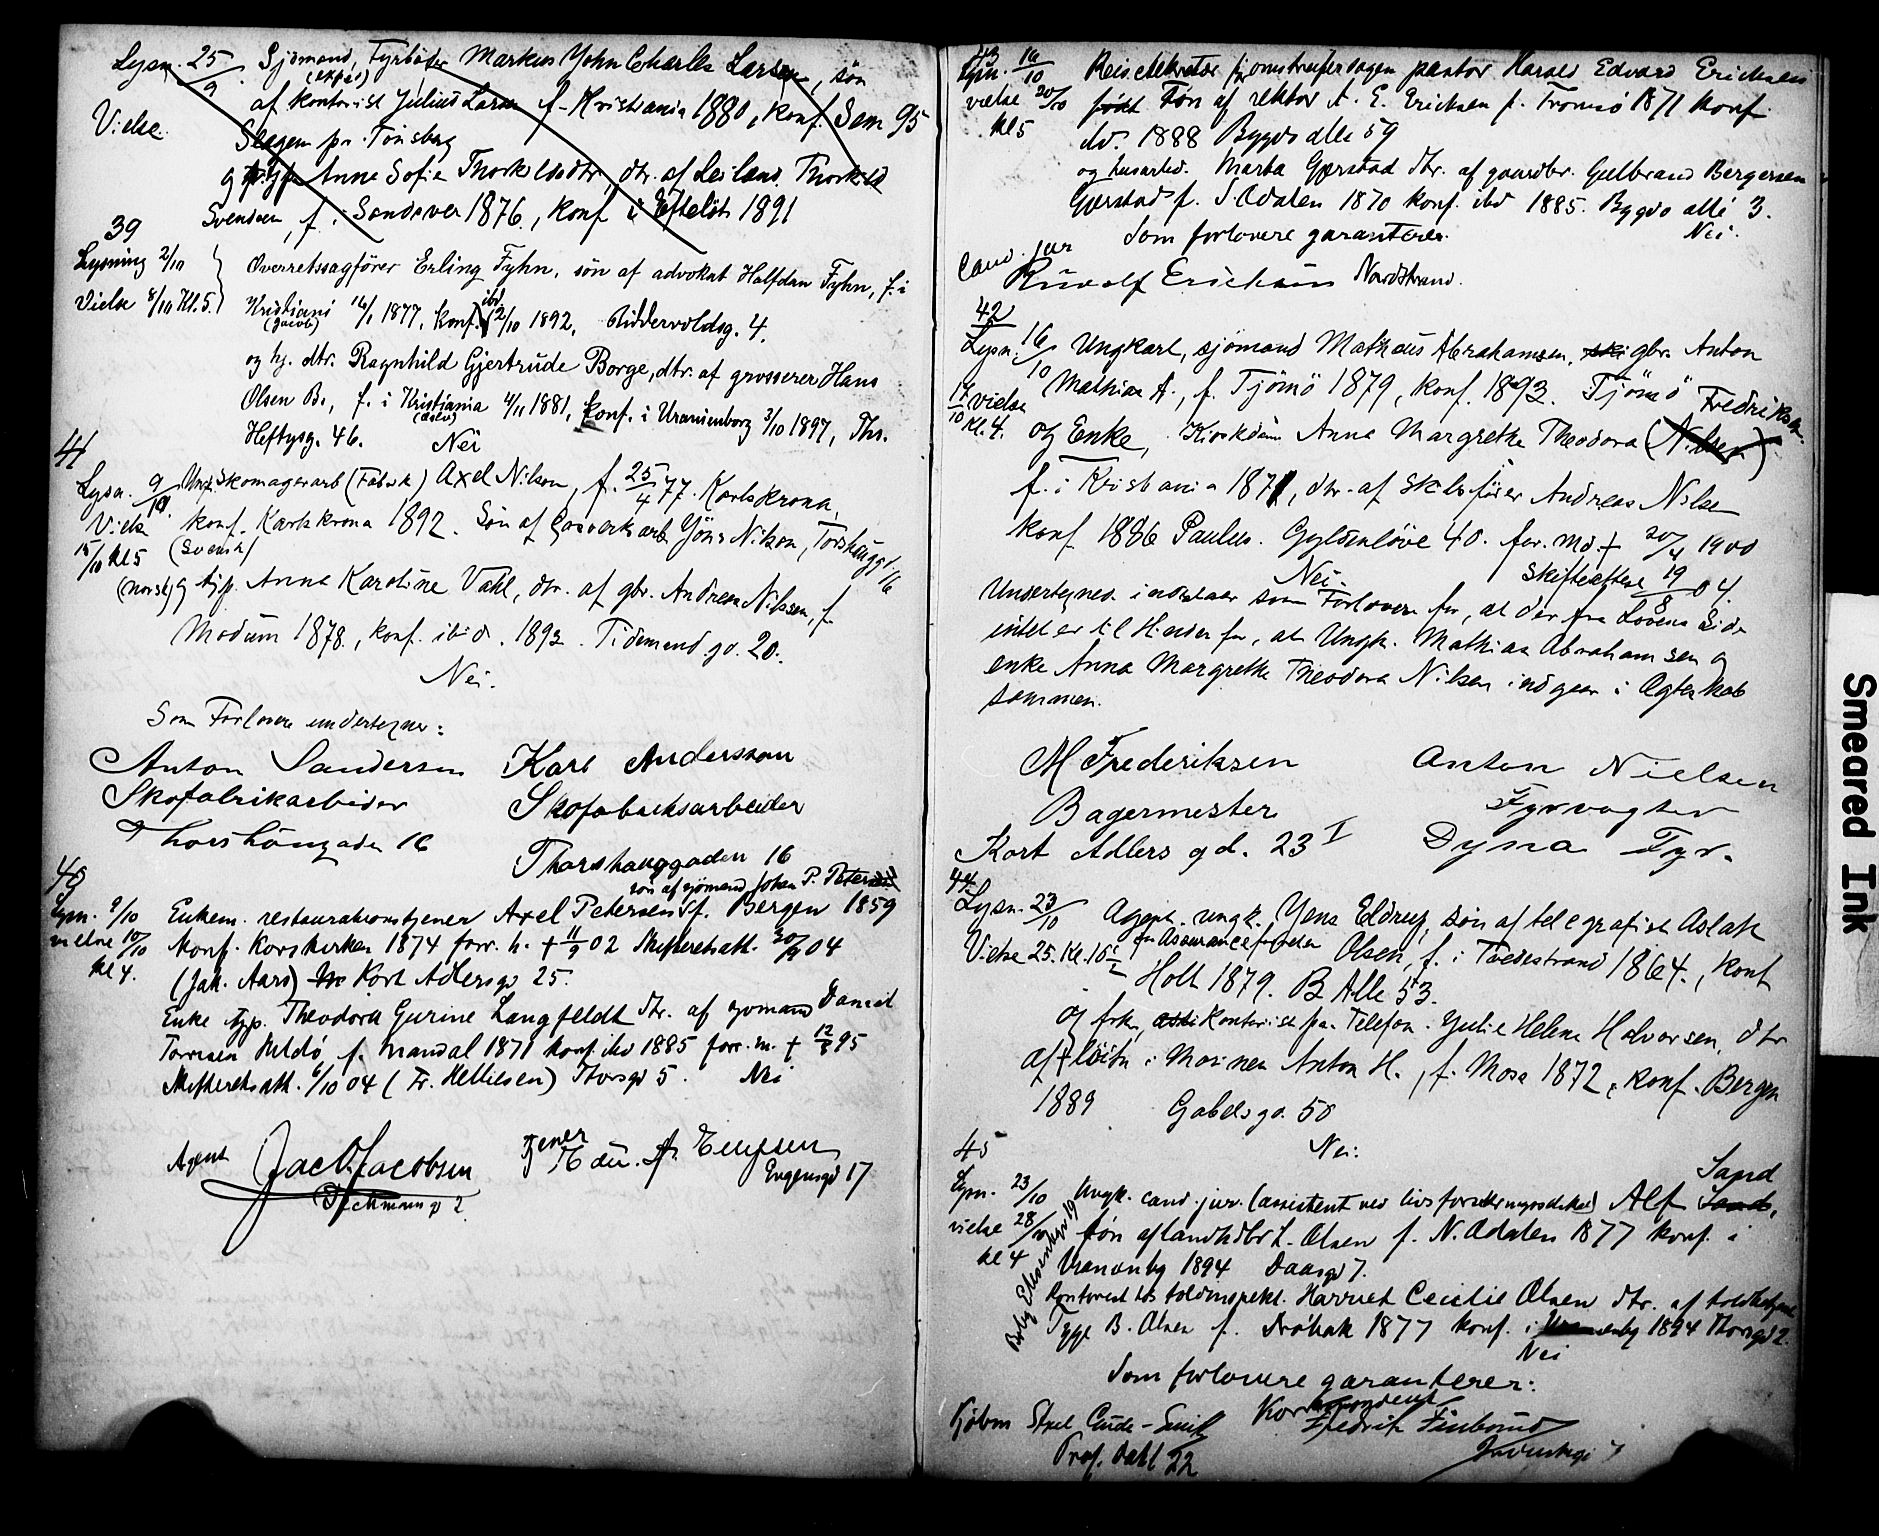 Lysn. 25/9 Sjömand, Fyrböter Markus John Charles Larsen, søn
Vielse. af kontorist Julius Larsen f. Kristiania 1880, konf. Sem 95
Slagen pr. Tönsberg
og Anna Sofie Thorkildsdtr, dtr. af Leilænd. Thorkild
Svendsen, f. i Sandsver 1876, konf i Efteløt 1891
39
Lysning 2/10 Overretssagfører Erling Fyhn, søn af advokat Halfdan Fyhn, f. i
Vielse 8/10 Kl. 5. Kristiania (Jacob) 16/1 1877, konf. ibd. 2/10 1892, Riddervoldsg. 4.
og hj. dtr. Ragnhild Gjertrude Borge, dtr. af grosserer Hans
Olsen B., f. i Kristiania (Oslo) 4/11 1881, konf. i Uranienborg 3/10 1897, Ths.
Heftysg. 46. Nei
41
Lysn. 9/10 Ungk. Skomagerarb (Fabrik) Axel Nilson, f. 25/4 77. Karlskrona,
Vielse konf. Karlskrona 1892. Søn af Gasverksarb. Jöns Nilson, Torshaugg. 16
15/10 kl 5 (svensk)
(norsk) og tjp. Anna Karoline Vahl, dtr. af gbr. Andreas Nilsen, f.
Modum 1878, konf. ibid. 1893. Tidemands gd. 20.
Nei.
Som Forlovere undertegner:
Anton Sandersen Karl Andersson
Skofabrikarbeider Skofabriksarbeider
Thorshaugaden 16 Thorshauggaden 16
40
søn af sjömand Johan P. Petersen
Lysn. 9/10 Enkem. restaurationstjener Axel Petersen f. Bergen 1859
vielse 10/10 Konf. Korskirken 1874 forr. h. † 11/9 02 Skifteretsatt. 30/9 04
kl 4. (Jak. Aars) Kort Adlersgd 25.
Enke tjp. Theodora Gurine Langfeldt dtr. af sjömand Daniel
Torrisen f. Mandal 1871 konf. ibd 1885 forr. m. † 12/8 95
Skifteretsatt. 6/10 04 (Fr. Mellielsen) Thorsgd 5. Nei
Agent Jac. Jacobsen Tjener
Dickmansg 2 Eugensgd 17
43
Lysn. 16/10 Reisesekretær pastor Harald Edvard Ericksen
vielse 20/10 født Søn af rektor A. E. Ericksen f. Tromsö 1871 konf.
kl 5 ibd. 1888 Bygdø alle 59
og husarbd. Marta Gjerstad dtr. af gaardbr. Gulbrand Bergersen
Gjerstad f. S. Odalen 1870 konf. ibd 1885. Bygdø allé 3.
Som forlovere garanterer. Nei.
Cand. jur
Rudolf Ericksen Nordstrand.
42
Lysn. 16/10 Ungkarl, sjömand Mathæus Abrahamsen, gbr. Anton
Mathias A., f. Tjömö 1879, konf. 1893. Tjömö
17/10 vielse Kl. 4. og Enke, Anna Margrethe Theodora (Nilsen) Fredriksen
f. i Kristiania 1871, dtr. af Andreas Nilsen
konf 1886 Paulus. Gyldenløve 40. for. Md. † 20/4 1900
Nei. Skifteattest 19/8 04.
Undertegnede indestaar som Forlovere for, at der fra Lovens Side
intet er til Hinder for, at Ungk. Mathias Abrahamsen og
enke Anna Margrethe Theodora Nilsen indgaar i Ægteskab
sammen.
M Frederiksen Anton Nielsen
Bagermester Fyrvogter
Kort Adlers gd. 23 I Dyna Fyr.
44.
Lysn. 23/10 Agent. ungk. Jens Eldrup, søn af telegrafist Aslak
Vielse 25. Kl. 10 1/2 for Assuranceforeten Olsen, f. i Tvedestrand 1864., konf
Holt 1879. B Alle 53.
og frk. kontorist pa. Telefon. Julie Helene Halvorsen, dtr
af † löitn i Marinen Anton H., f. Moss 1872, konf. Bergen
1889 Gabelsgd. 50
Nei.
45
Lysn. 23/10 Ungk. cand. jur. (assistent ved livsforsikringsselskab) Alf Sand,
vielse 28/10 søn af landhdbr L. Olsen f. N. Odalen 1877 konf. i
kl 4 Uranenbg 1894 Daasgd 7.
Kontorist hos toldinspekt. Harriet Cecilie Olsen dtr. af toldbetjent
B. Olsen f. Dröbak 1877 konf. i Uranenbg 1894 Thorsgd 2.
Nei
Som forlovere garanterer:
Kjøbm Axel Gude-Smith Korrespondent
Prof. Dahl 22
Smeared Ink